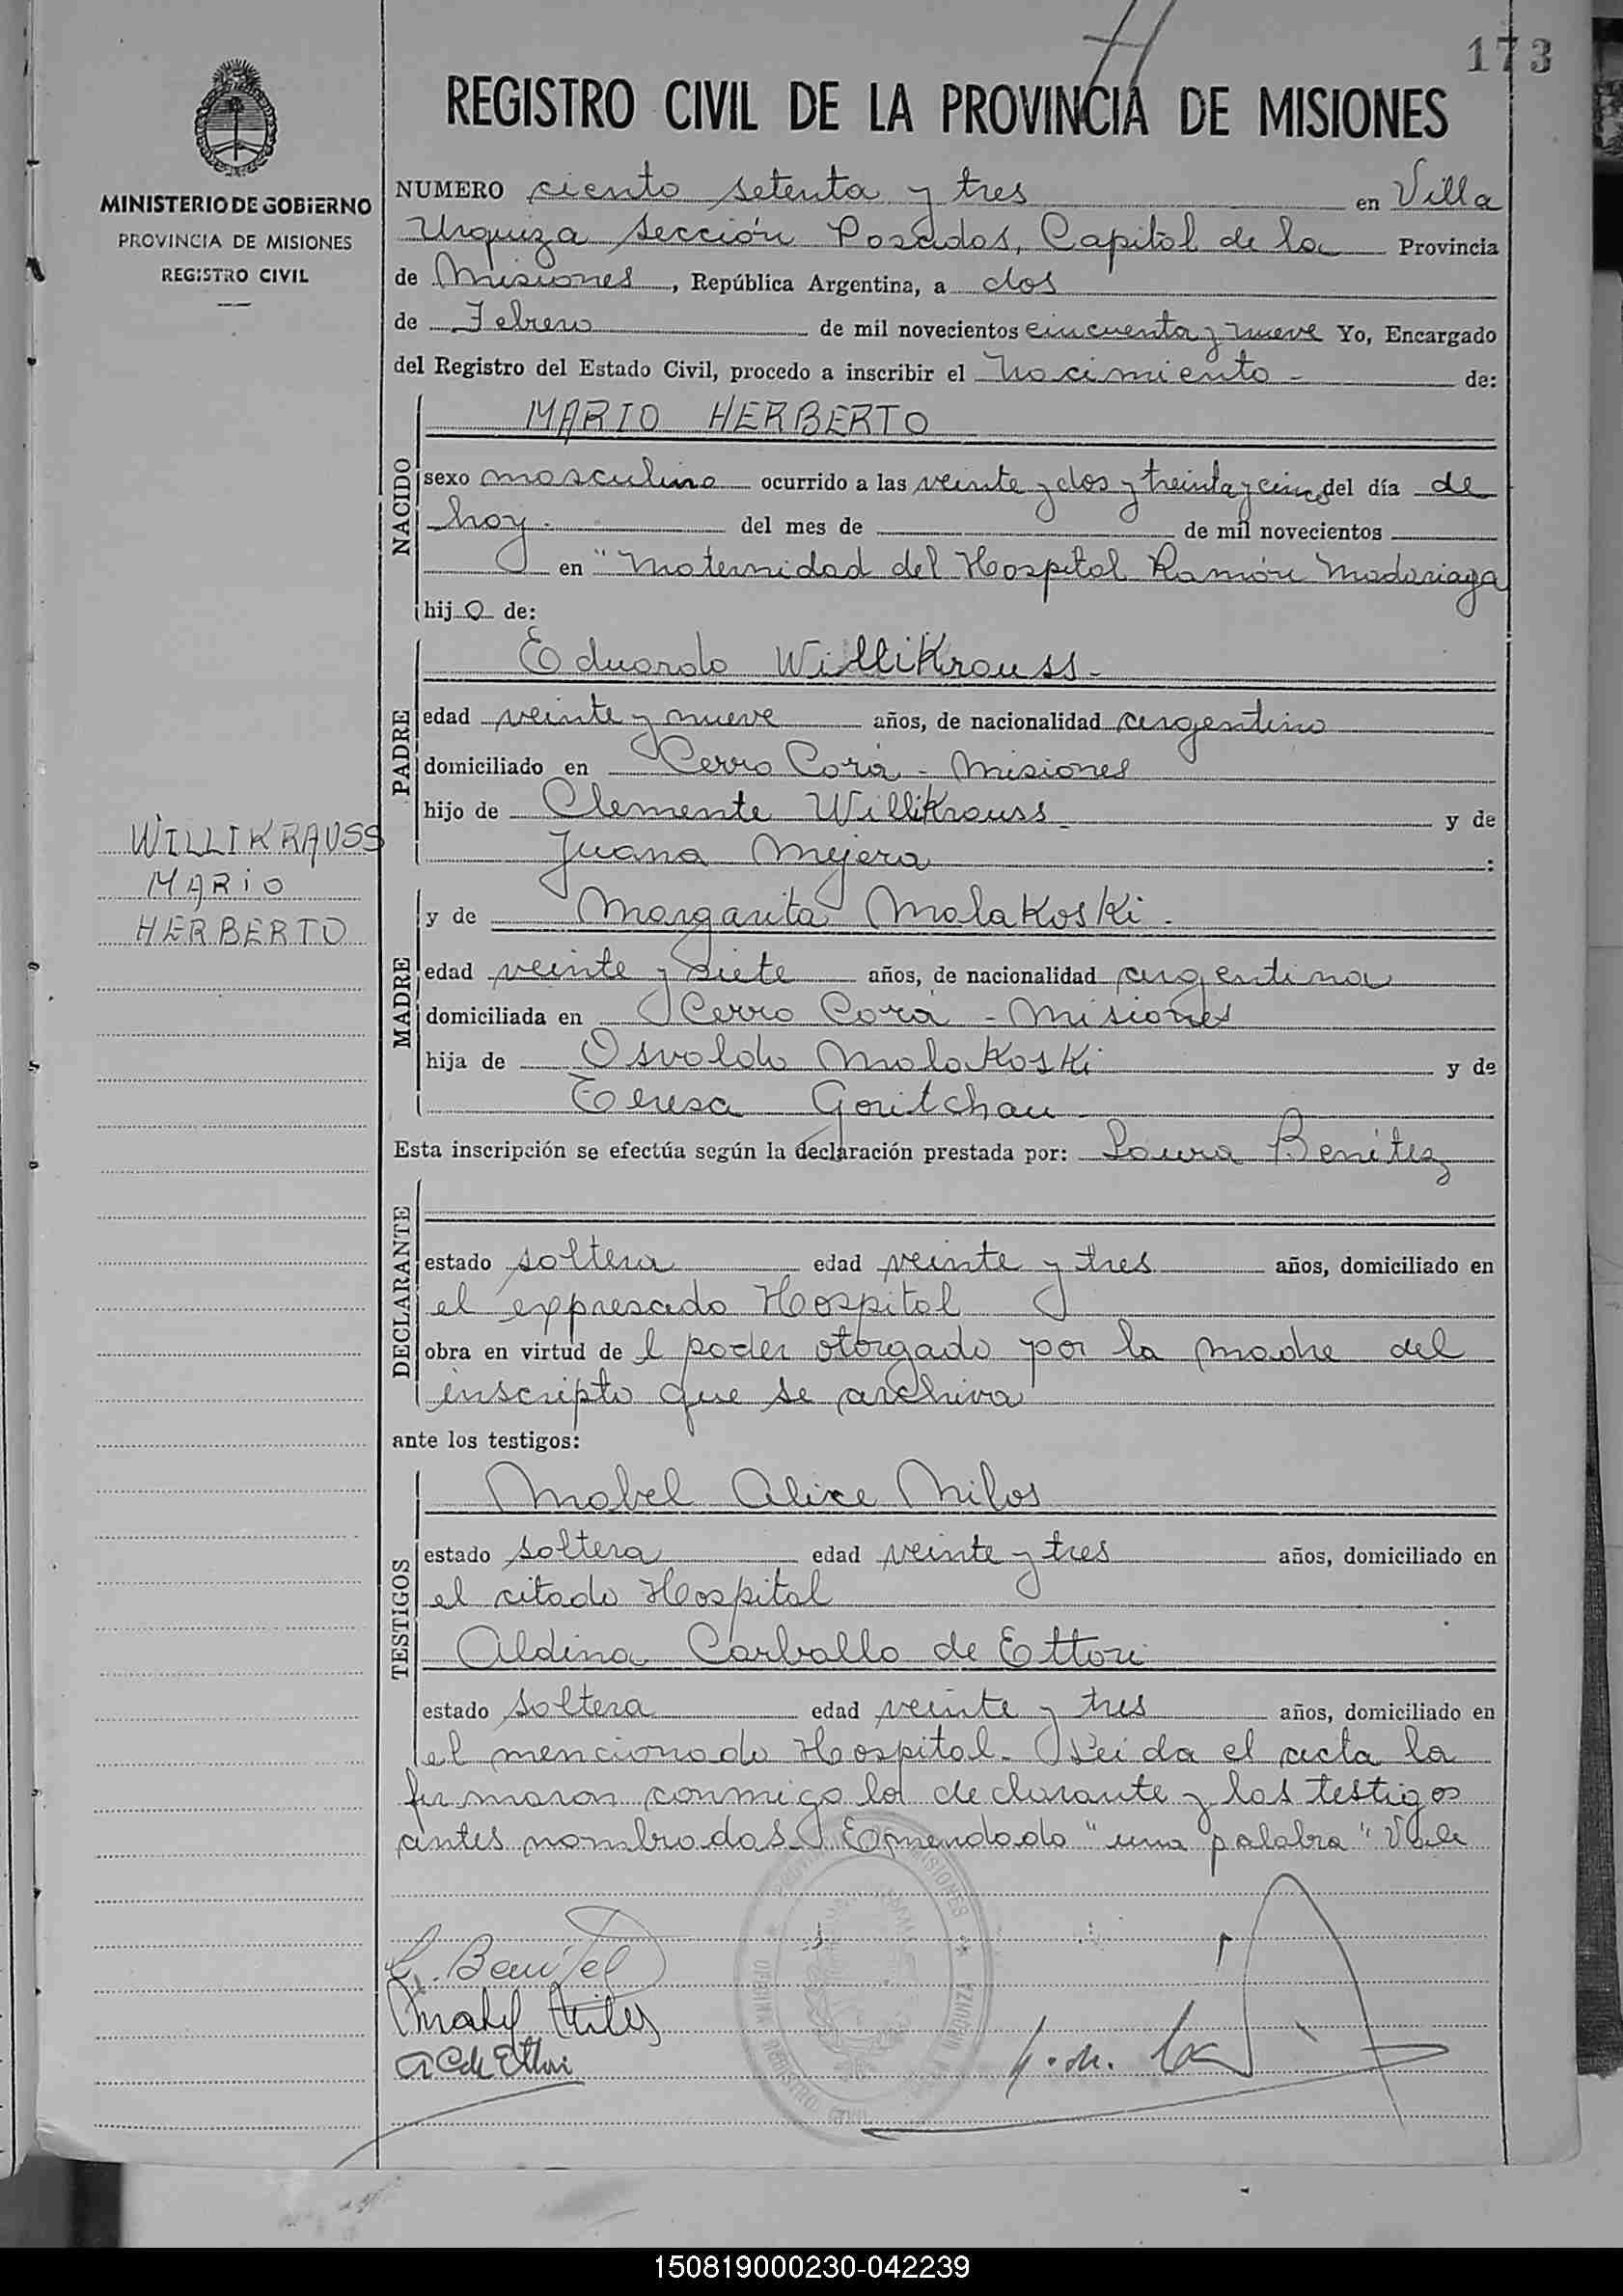 173
REGISTRO CIVIL DE LA PROVINCIA DE MISIONES
MINISTERIO DE GOBIERNO
PROVINCIA DE MISIONES
REGISTRO CIVIL
NUMERO ciento setenta y tres en Villa
Urquiza Sección Posadas, Capital de la Provincia
de Misiones, República Argentina, a dos
de Febrero de mil novecientos cincuenta y nueve Yo, Encargado
del Registro del Estado Civil, procedo a inscribir el Nacimiento - de:
NACIDO
MARIO HERBERTO
sexo masculino ocurrido a las veinte y dos y treinta y cinco del día de
hoy. del mes de de mil novecientos
en "Maternidad del Hospital Ramón Madariaga
hijo de:
PADRE
Eduardo Willikrauss.
edad veinte y nueve años, de nacionalidad argentino
domiciliado en Cerro Corá - Misiones
hijo de Clemente Willikrauss. y de
Juana Mejera :
WILLIKRAUSS
MARIO
HERBERTO
MADRE
y de Margarita Malakoski.
edad veinte y siete años, de nacionalidad argentina
domiciliada en Cerro Corá - Misiones
hija de Osvaldo Malakoski y de
Teresa Goritchau
Esta inscripción se efectúa según la declaración prestada por: Laura Benítez
DECLARANTE
estado soltera edad veinte y tres años, domiciliado en
el expresado Hospital
obra en virtud de l poder otorgado por la madre del
inscripto que se archiva
ante los testigos:
TESTIGOS
Mabel Alice Milos
estado soltera edad veinte y tres años, domiciliado en
el citado Hospital
Aldina Carballo de Ettori
estado soltera edad veinte y tres años, domiciliado en
el mencionado Hospital. Leída el acta la
firmaron conmigo la declarante y los testigos
antes nombrados. Enmendado "una palabra" Vale
L. Benítez
Mabel Milos
A C de Ettori
150819000230-042239